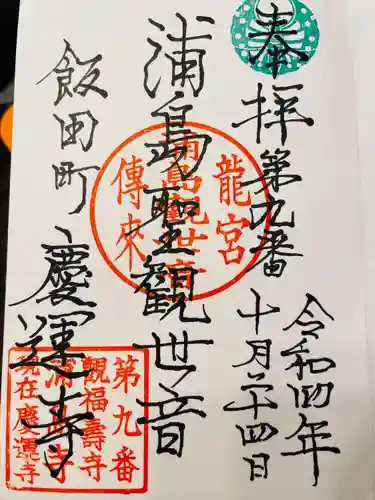 奉拝
第九番
令和四年
十月二十四日
浦島聖観世音
飯田町 慶運寺
龍宮
浦島観世音
傳來
第九番
観福壽寺
浦島寺
現在慶運寺